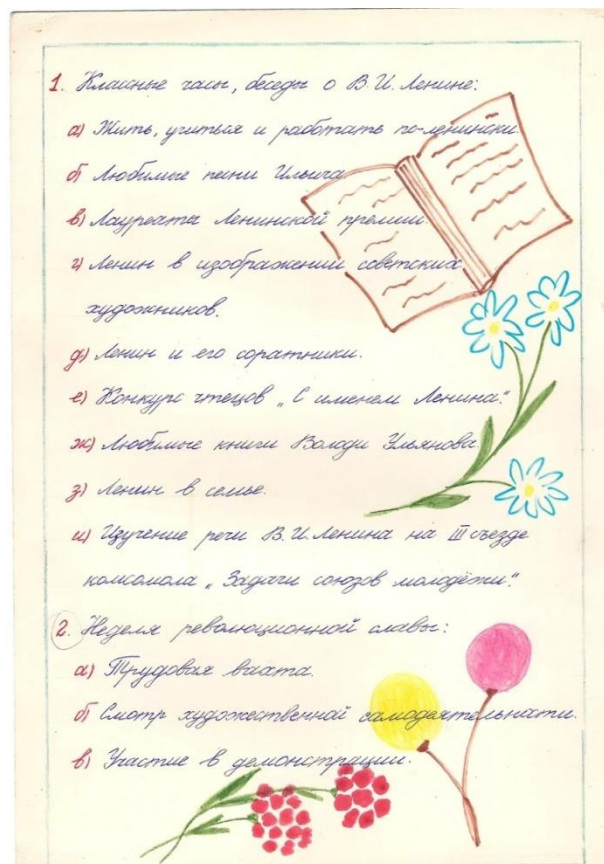 1. Классные часы, беседы о В.И. Ленине:
а) Жить, учиться и работать по-ленински.
б) Любимые песни Ильича
в) Лауреаты Ленинской премии.
г) Ленин в изображении советских
художников.
д) Ленин и его соратники.
е) Конкурс чтецов „С именем Ленина."
ж) Любимые книги Володи Ульянова
з) Ленин в семье.
и) Изучение речи В.И. Ленина на III съезде
комсомола „Задачи союзов молодёжи."
2. Неделя революционной славы:
а) Трудовая вахта.
б) Смотр художественной самодеятельности.
в) Участие в демонстрации.